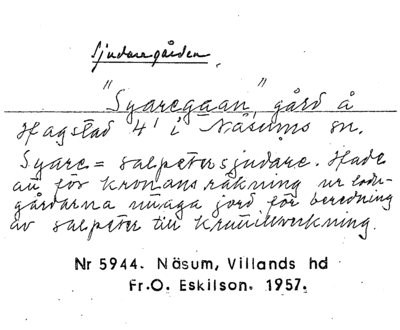 Sjudaregården.
"Syaregaan," gård å
Hagstad 4' i Näsums sn.
Syare = salpetersjudare. Hade
att för kronans räkning ur ladu-
gårdarna uttaga jord för beredning
av salpeter till kruttillverkning.
Nr 5944. Näsum, Villands hd
Fr.O. Eskilson. 1957.